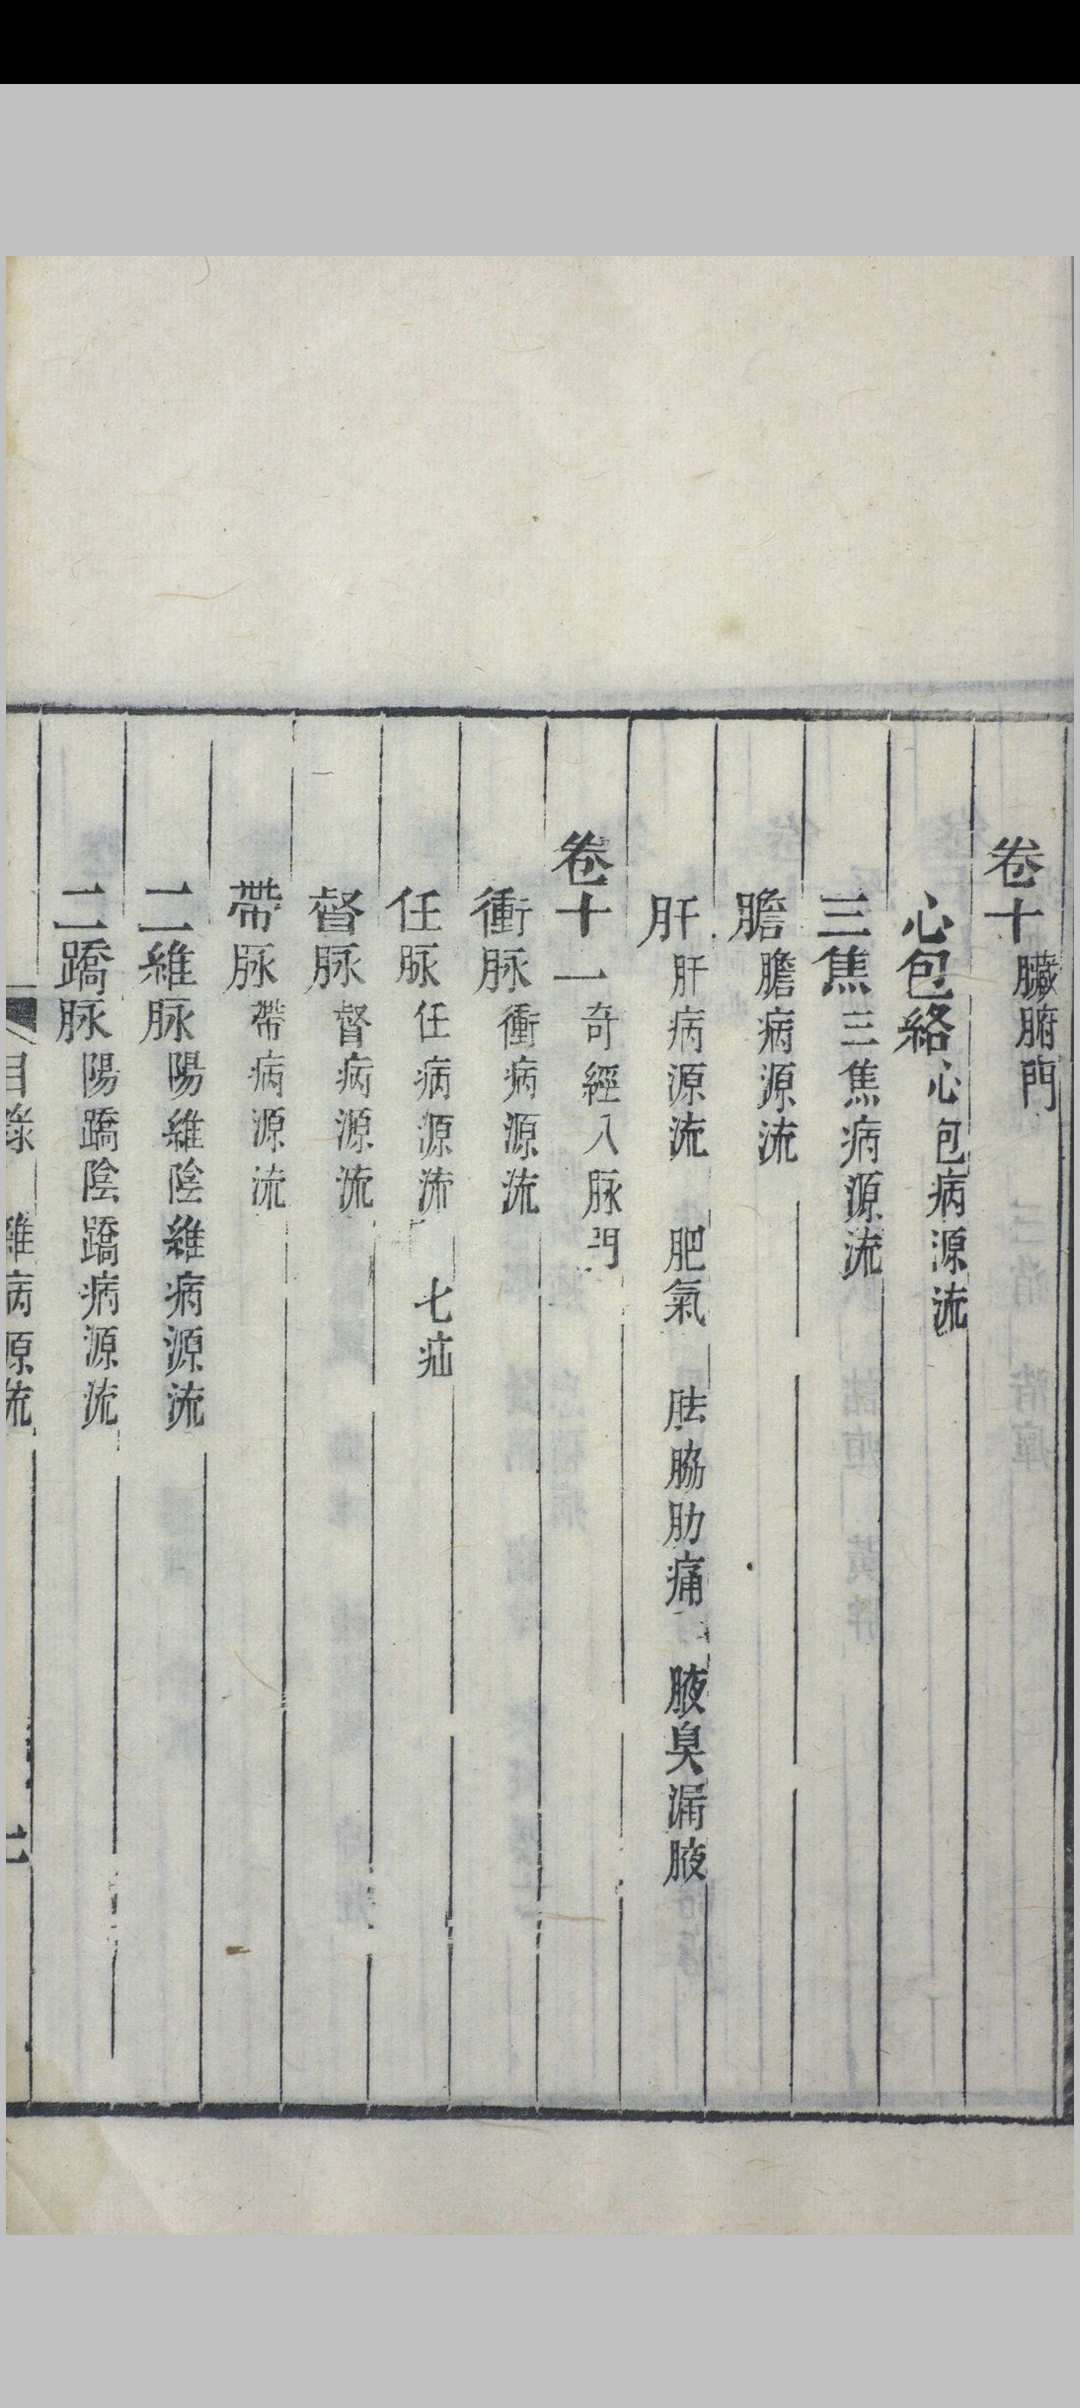 卷十 臟腑門
心包絡 心包病源流
三焦 三焦病源流
膽 膽病源流
肝 肝病源流 肥氣 胠脇肋痛 腋臭漏腋
卷十一 奇經八脉門
衝脉 衝病源流
任脉 任病源流 七疝
督脉 督病源流
帶脉 帶病源流
二維脉 陽維陰維病源流
二蹻脉 陽蹻陰蹻病源流
目錄 雜病原流 七